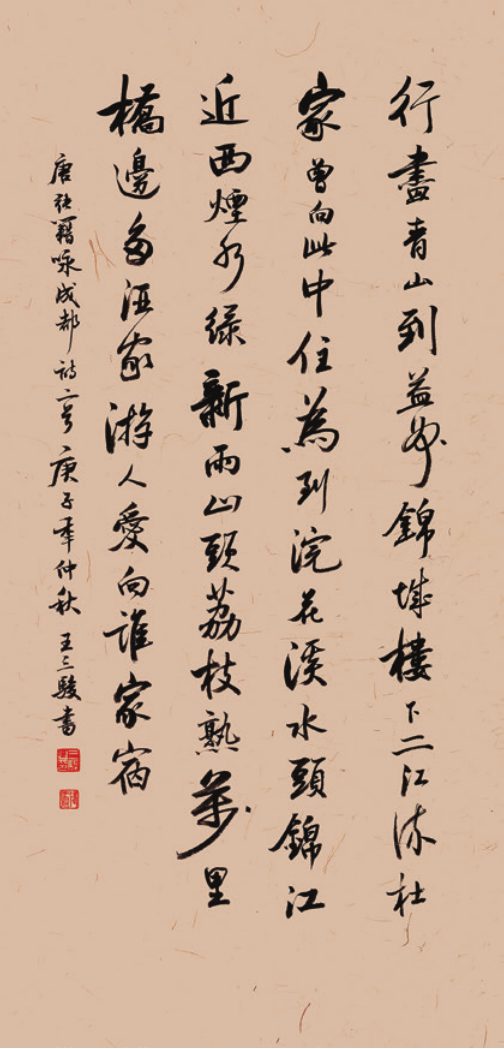 行盡青山到益州錦城樓下二江流杜
家曾向此中住為到浣花溪水頭錦江
近西煙水綠新雨山頭荔枝熟萬里
橋邊多酒家游人愛向誰家宿
唐張籍咏成都詩二首庚子年仲秋王三駿書